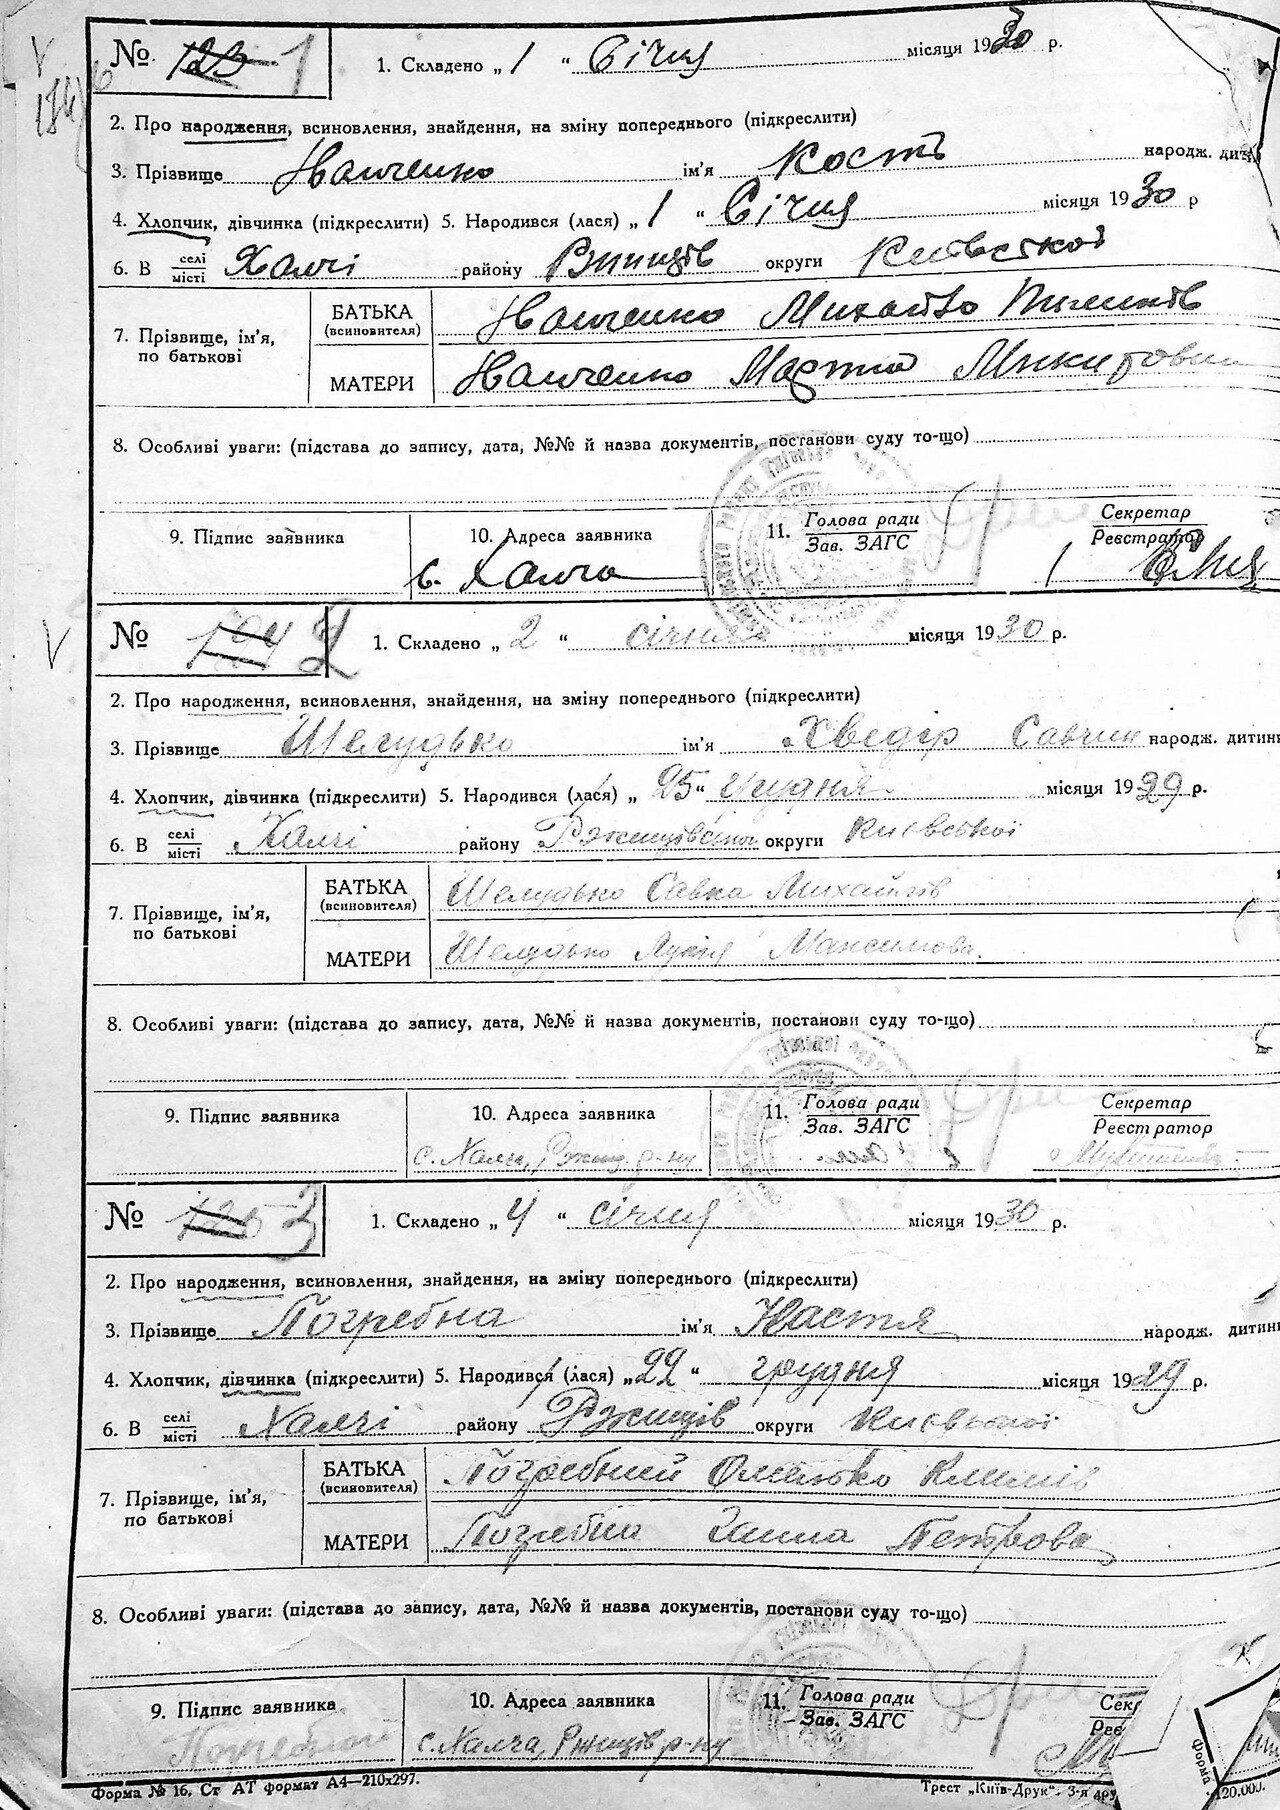 № 123 1 1. Складено „ 1 “ Січня місяця 1930 р.
2. Про народження, всиновлення, знайдення, на зміну попереднього (підкреслити)
3. Прізвище Іванченко ім'я Кость народж. дит
4. Хлопчик, дівчинка (підкреслити) 5. Народився (лася) „ 1 “ Січня місяця 1930 р
6. В селі/місті Халчі району Ржищів округи Київської
7. Прізвище, ім'я, по батькові
БАТЬКА (всиновителя) Іванченко Михайло Пилипів
МАТЕРИ Іванченко Марта Микитовна
8. Особливі уваги: (підстава до запису, дата, №№ й назва документів, постанови суду то-що)
9. Підпис заявника 10. Адреса заявника 11. Голова ради/Зав. ЗАГС Секретар/Реєстратор
с. Халча
№ 124 2 1. Складено „ 2 “ січня місяця 1930 р.
2. Про народження, всиновлення, знайдення, на зміну попереднього (підкреслити)
3. Прізвище Шелудько ім'я Хведір Савчин народж. дитини
4. Хлопчик, дівчинка (підкреслити) 5. Народився (лася) „ 25 “ грудня місяця 1929 р.
6. В селі/місті Халчі району Ржищівськ округи Київської
7. Прізвище, ім'я, по батькові
БАТЬКА (всиновителя) Шелудько Савка Михайлів
МАТЕРИ Шелудько Лукія Максимова.
8. Особливі уваги: (підстава до запису, дата, №№ й назва документів, постанови суду то-що)
9. Підпис заявника 10. Адреса заявника 11. Голова ради/Зав. ЗАГС Секретар/Реєстратор
с. Халча, Ржищ. р-ну
№ 125 3 1. Складено „ 4 “ січня місяця 1930 р.
2. Про народження, всиновлення, знайдення, на зміну попереднього (підкреслити)
3. Прізвище Погребна ім'я Настя народж. дитини
4. Хлопчик, дівчинка (підкреслити) 5. Народився (лася) „ 22 “ грудня місяця 1929 р.
6. В селі/місті Халчі району Ржищів округи Київської
7. Прізвище, ім'я, по батькові
БАТЬКА (всиновителя) Погребний Омелько Климів
МАТЕРИ Погребна Ганна Петрова
8. Особливі уваги: (підстава до запису, дата, №№ й назва документів, постанови суду то-що)
9. Підпис заявника 10. Адреса заявника 11. Голова ради/Зав. ЗАГС Секр
Погребной с. Халча, Ржищів р-ну
Форма № 16. Ст АТ формат А4—210х297. Трест „Київ-Друк“. 3-я дру Форма 120.000.